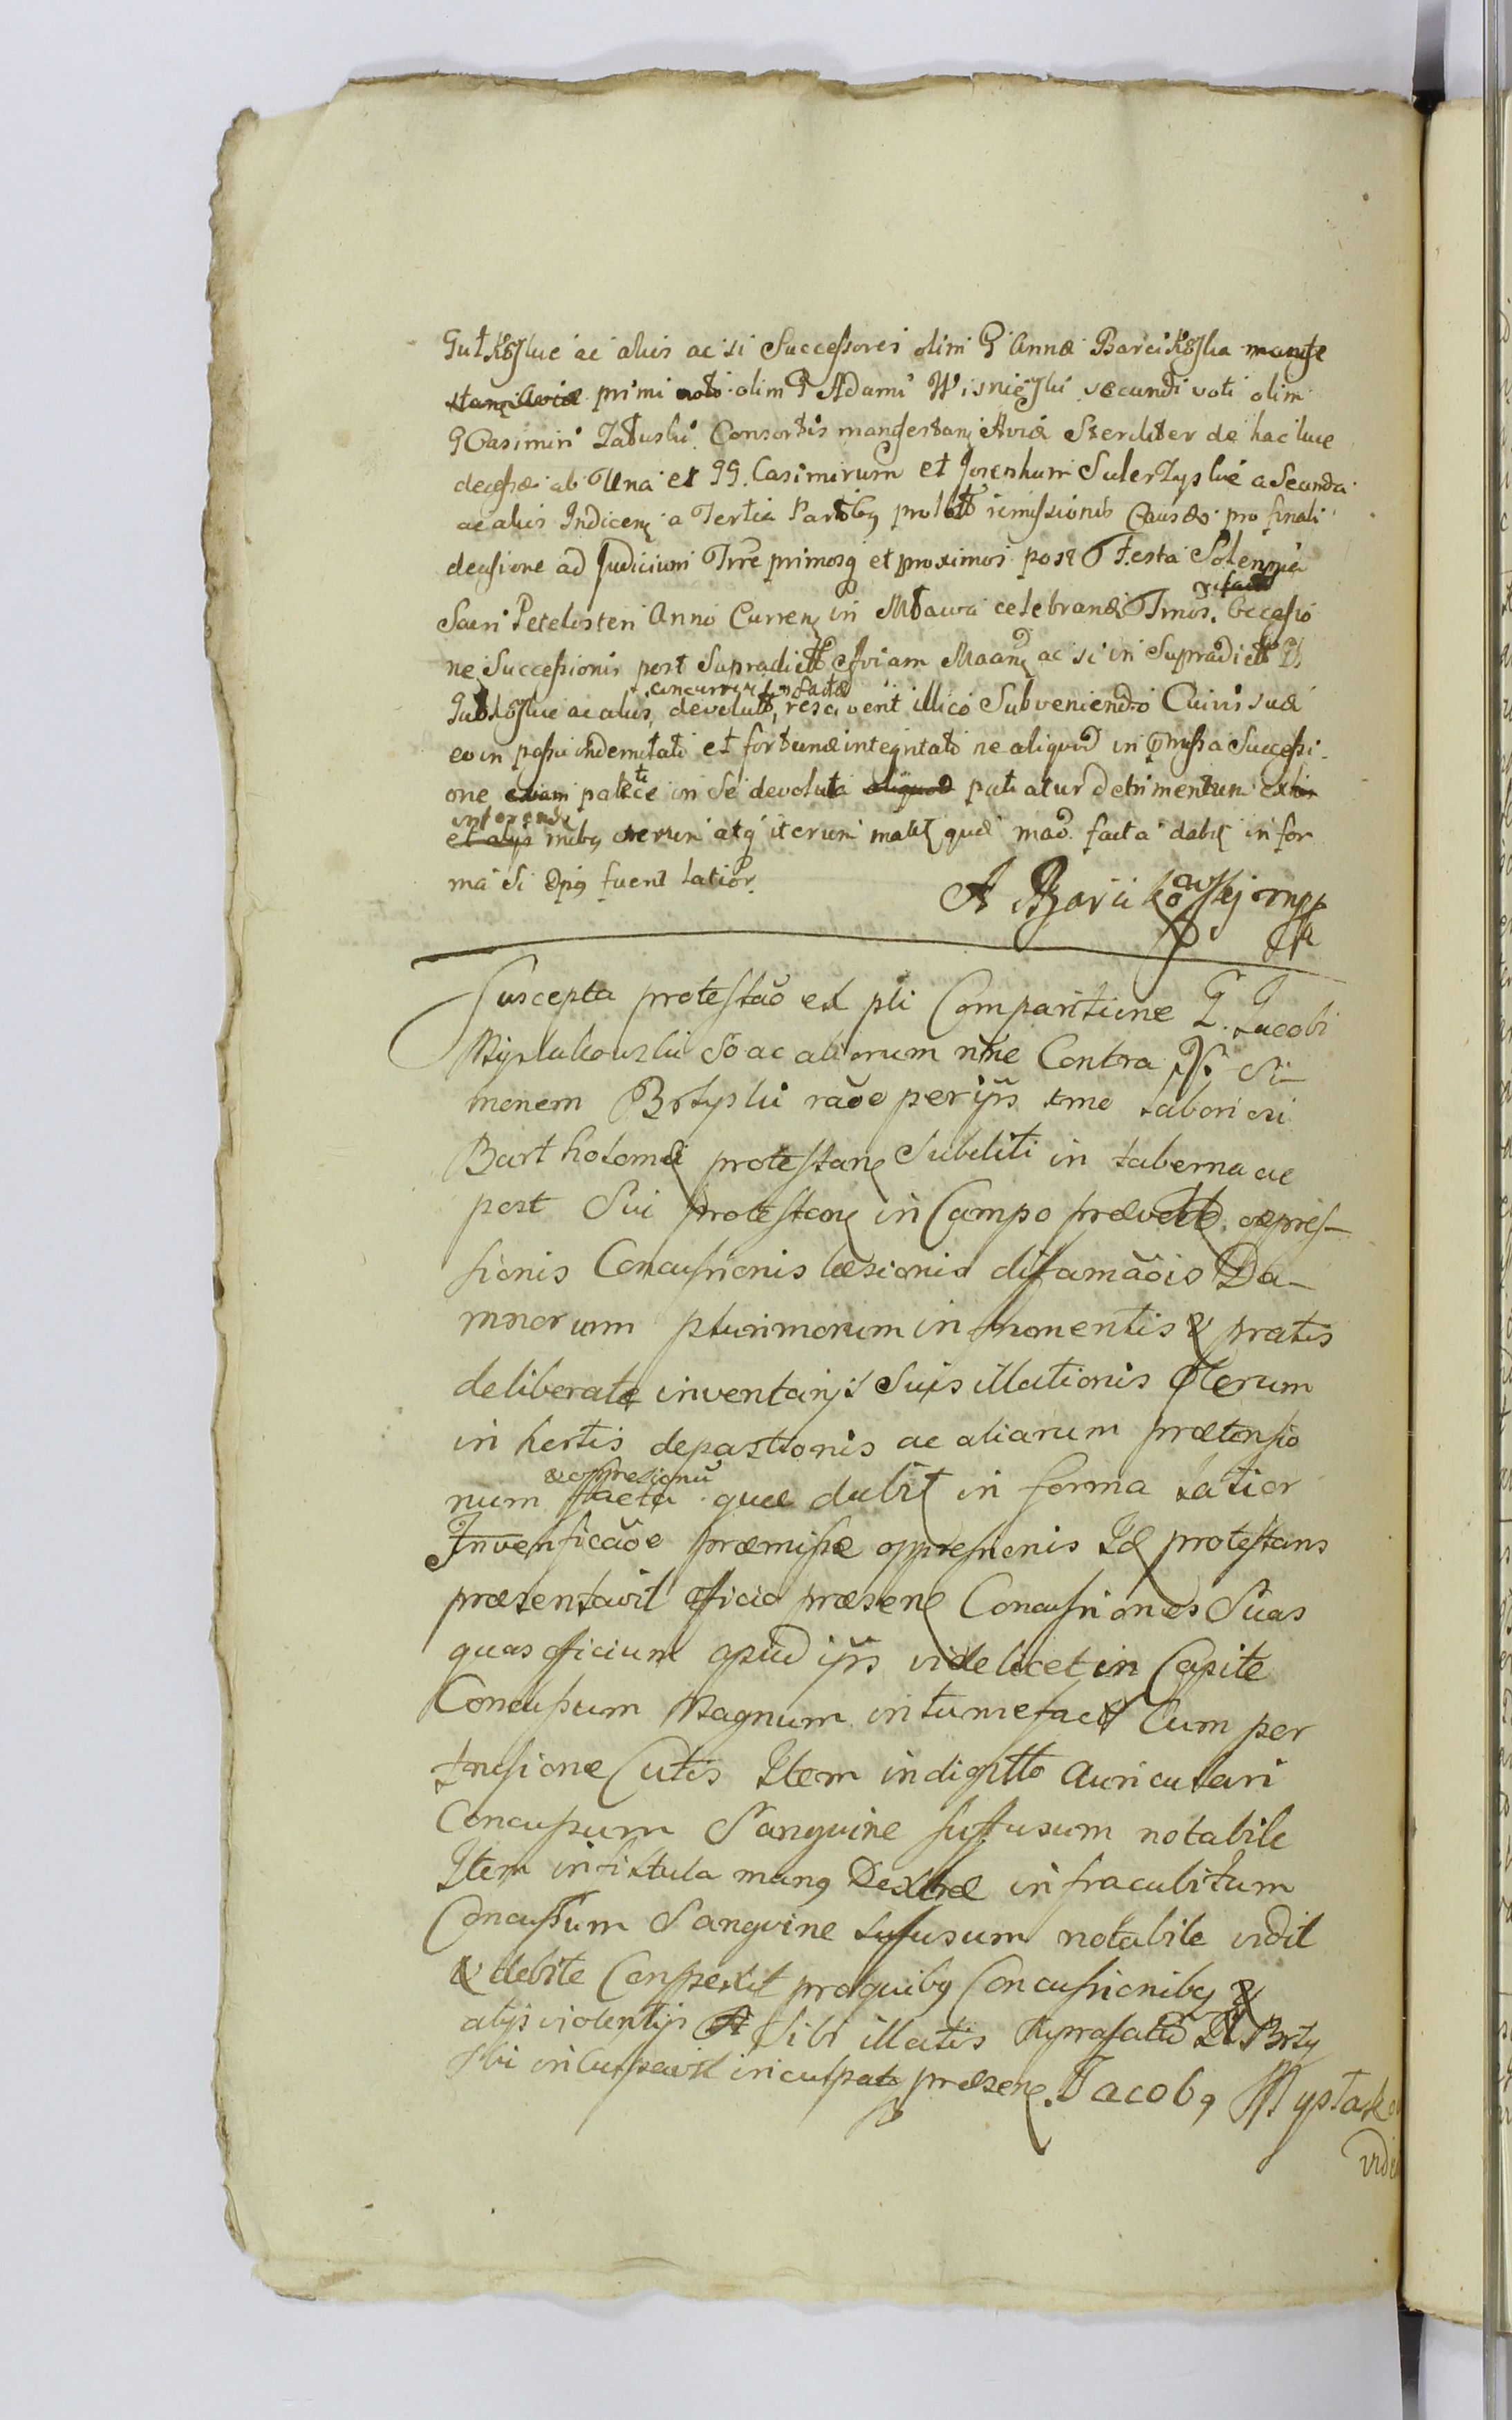 Gutkoski ac aliis ac si Successores olim G Annæ Barcikoska manife
stanς Aviæ primi voti olim G Adami Wisnieski secundi voti olim
G Casimiri Zatuski Consortis manifestanς Aviæ Steriliter de hac luce
decessæ ab Una et GG. Casimirum et Josephum Sulerzyskie a Secunda
ac aliis Indicenς a Tertia Partibq remissionis Causæ pro finali
decisione ad Judicium Trre primosq et proximos post Festa Solennia
Sacri Pentecosten Anno Currenς in Mlawa celebranδ Tmos. Occasio
ne Successionis post Supradictā Aviam Maanς ac si in Supradictos
concurren
Gutkoskie ac aliis, devolutæ, resciverit illico Subveniendo Cuivis suæ
eo in passu indemnitati et fortunæ integritati ne aliquod in præmissa Successi
one etiam in Se devoluta aliquod patiatur detrimentum
et alys iterum atq iterum manς quæ facta dabiς in for
ma si opq fuerit latior.
A Barcikowskj mpp
Suscepta protestaō et pli Comparitione G. G. Jacobi
Mystakowski So ac aliorum nne Contra G. Si
monem Brzyski raōe per ipsς laboriosi
Bartholomæi protestanς Subditi in taberna ac
post Sui protestanς in Campo oppres
sionis Concussionis læsionis diffamaōis Da
mnorum plurimorum in frumentis & pratis
deliberate inventarys Suis illationis Olerum
in hortis depastionis ac aliarum prætensio
& oppresionū
num facta quæ dabiς in forma latior
In verificaōe præmissæ oppressionis Id protestans
præsentavit officio præsenς Concussiones Suas
quas officium apud ipsς videlicet in Capite
Concussum Magnum intumefact Cum per
trusione Cutis Item in digitto Auriculari
Concussum Sanguine suffusum notabile
Item in fistula manq Dextræ infra cubitum
Concussum Sanguine suffusum notabile vidit
& debite Conspexit pro quibq Concussionibq &
alys violentys Sibi illatis supra fatū Brzy
ski inculpavit inculpatq præsenς. Jacobq Mystak
vidi